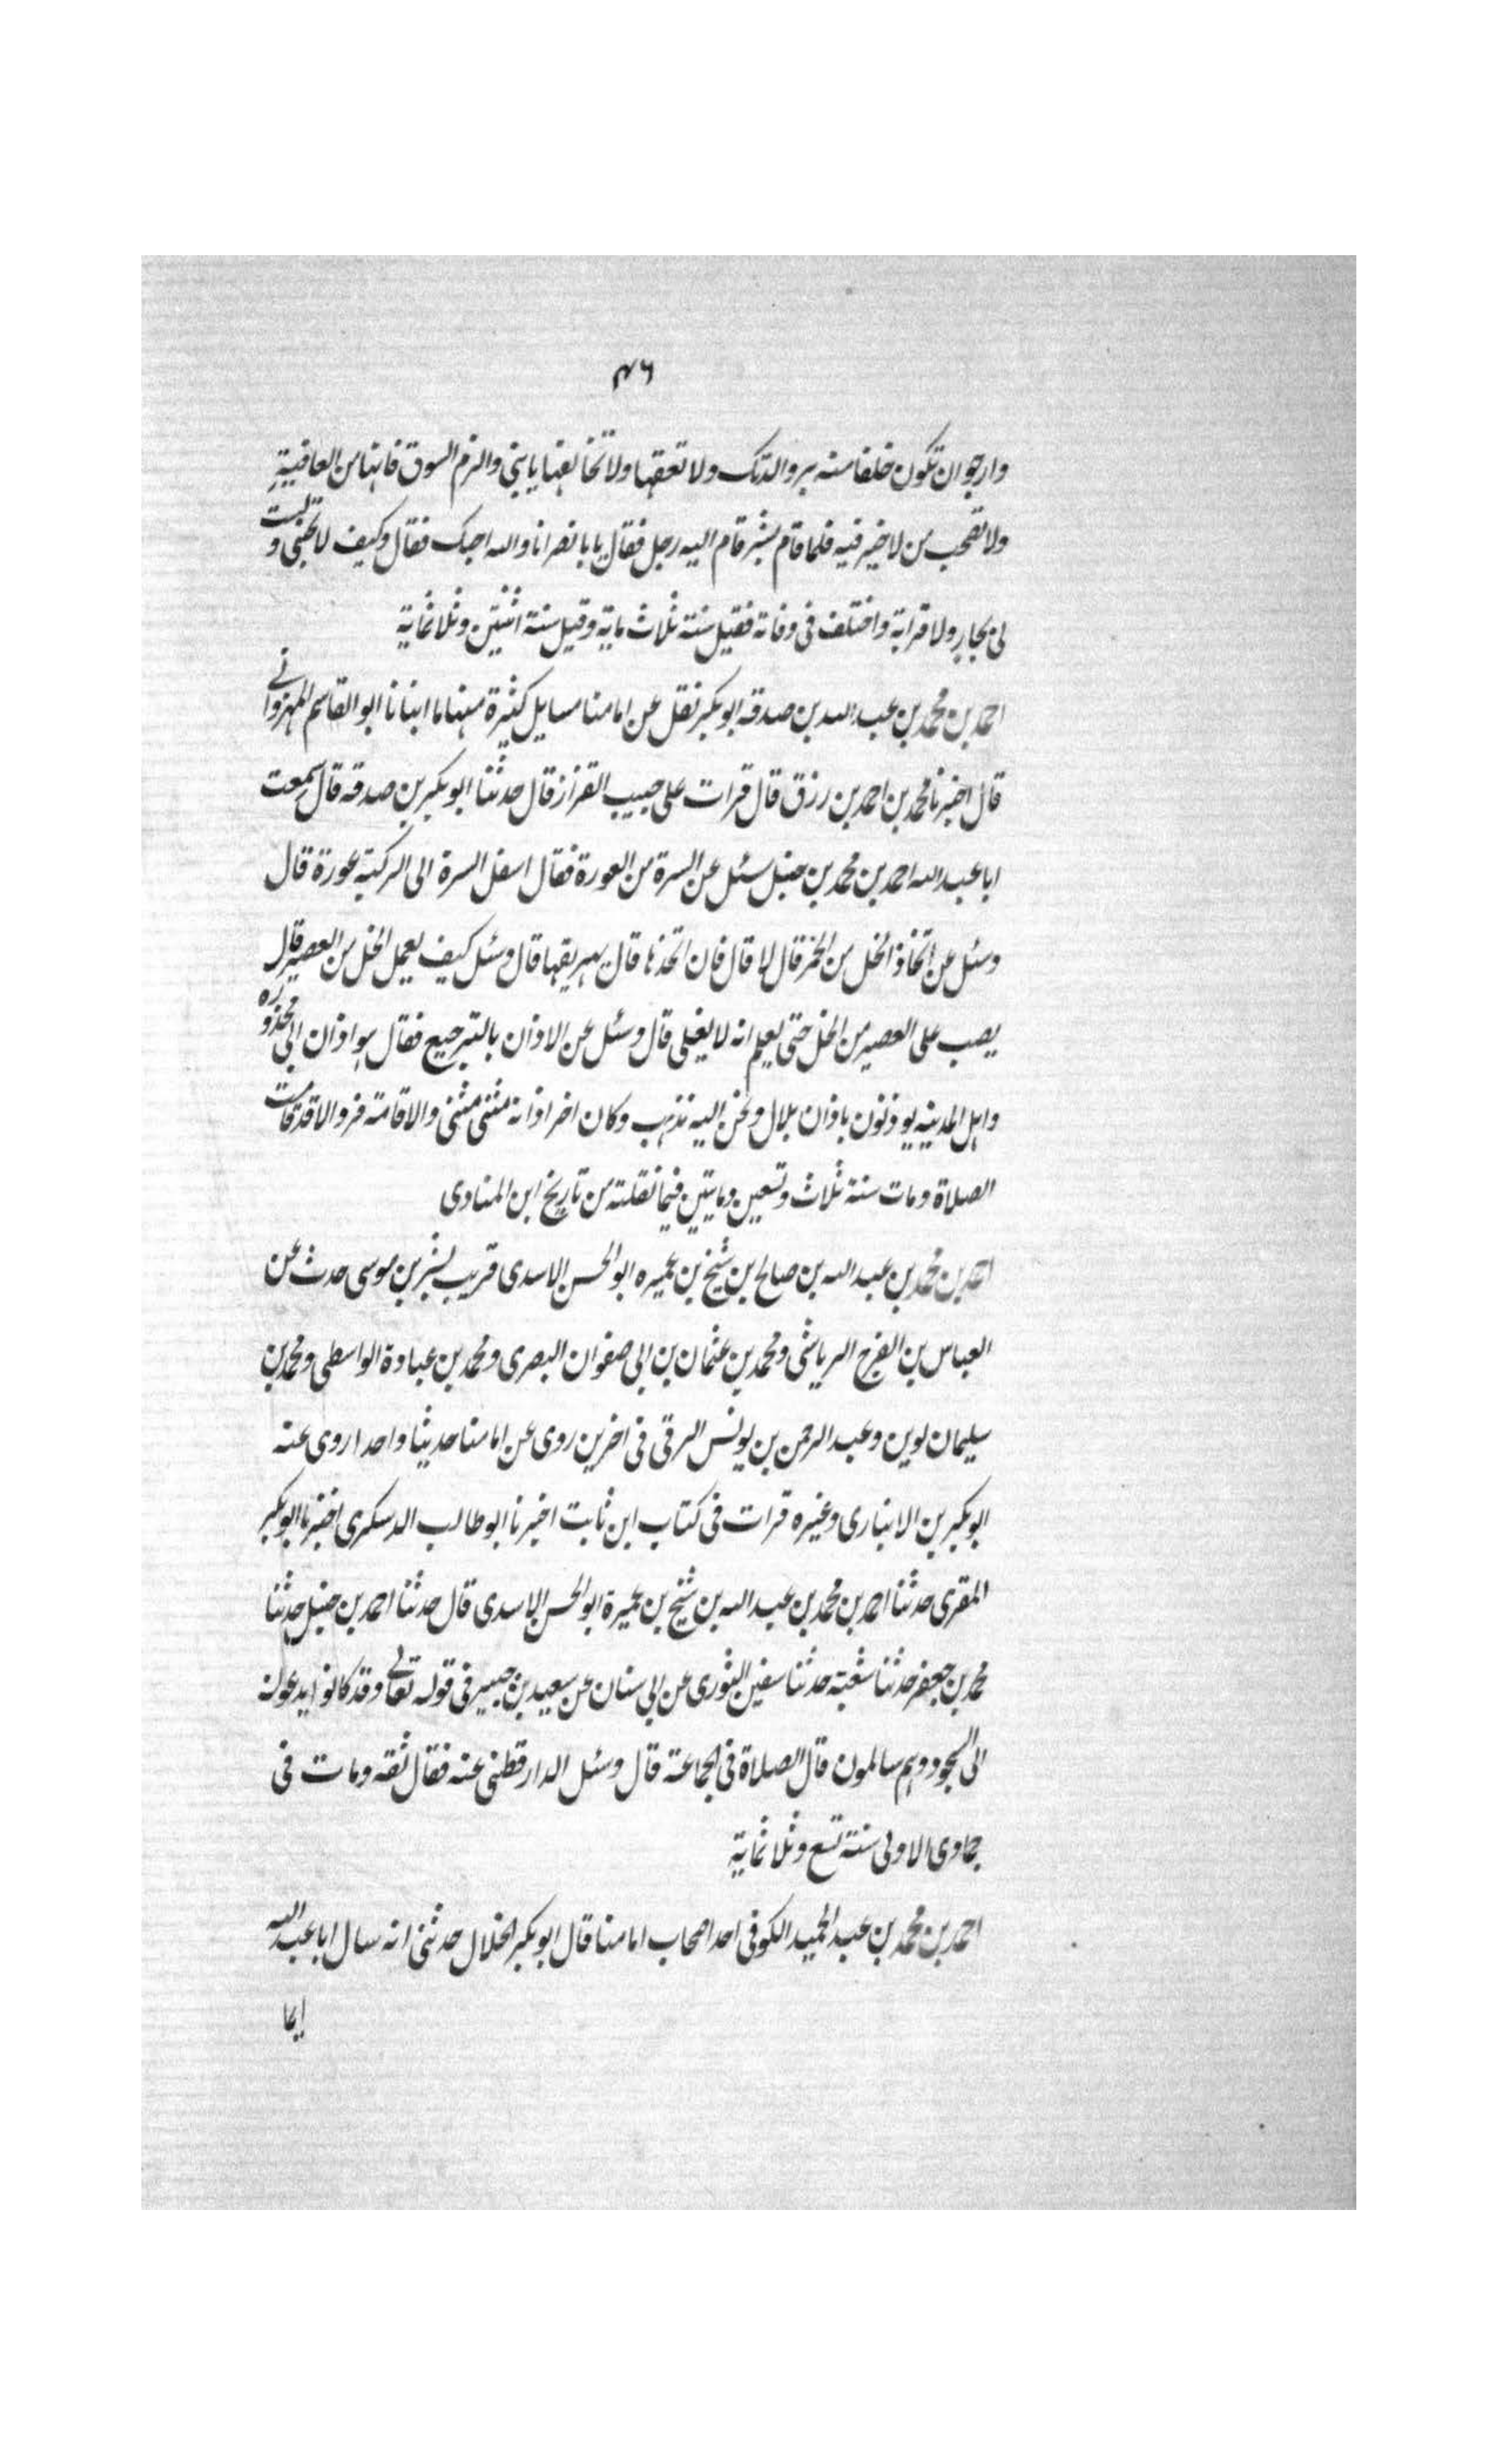 ٤٦
وارجو ان تكون خلفا منه بر والدتك ولا تعقها ولا تخالفها يا بني والزم السوق فانها من العافية
ولا تصحب من لا خير فيه فلما قام بشر قام اليه رجل فقال يا با نصر انا والله احبك فقال وكيف لا تحبني ولست
لي بجار ولا قرابة واختلف في وفاته فقيل سنة ثلاث ماية وقيل سنة اثنتين وثلاثماية
احمد بن محمد بن عبد الله بن صدقه ابو بكر نقل عن امامنا مسايل كثيرة منها ما انبانا ابو القاسم المهرواني
قال اخبرنا محمد بن احمد بن رزق قال قرات على حبيب القزاز قال حدثنا ابو بكر بن صدقه قال سمعت
ابا عبد الله احمد بن محمد بن حنبل سئل عن السرة من العورة فقال اسفل السرة الى الركبة عورة قال
وسئل عن اتخاذ الخل من الخمر قال لا قال فان اتخذها قال يهريقها قال وسئل كيف يعمل الخل من العصير قال
يصب على العصير من الخل حتى يعلم انه لا يغلي قال وسئل عن الاذان بالترجيع فقال هو اذان ابي محذوره
واهل المدينه يوذنون باذان بلال ونحن اليه نذهب وكان اخر اذانه مثنى مثنى والاقامة فرد الا قد قامت
الصلاة ومات سنة ثلاث وتسعين ومايتين فيما نقلته من تاريخ ابن المنادى
احمد بن محمد بن عبد الله بن صالح بن شيخ بن عميره ابو الحسن الاسدى قريب لبشر بن موسى حدث عن
العباس بن الفرج الرياشى ومحمد بن عثمان بن ابى صفوان البصرى ومحمد بن عبادة الواسطى ومحمد بن
سليمان لوين وعبد الرحمن بن يونس الرقى فى اخرين روى عن امامنا حديثا واحدا روى عنه
ابو بكر بن الانبارى وغيره قرات فى كتاب ابن ثابت اخبرنا ابو طالب الدسكرى اخبرنا ابو بكر
المقرى حدثنا احمد بن محمد بن عبد الله بن شيخ بن عميرة ابو الحسن الاسدى قال حدثنا احمد بن حنبل حدثنا
محمد بن جعفر حدثنا شعبة حدثنا سفين الثورى عن ابى سنان عن سعيد بن جبير فى قوله تعالى وقد كانوا يدعون
الى السجود وهم سالمون قال الصلاة فى الجماعة قال وسئل الدار قطنى عنه فقال ثقه ومات فى
جمادى الاولى سنة تسع وثلاثماية
احمد بن محمد بن عبد الحميد الكوفى احد اصحاب امامنا قال ابو بكر الخلال حدثنى انه سال ابا عبد الله
ايما